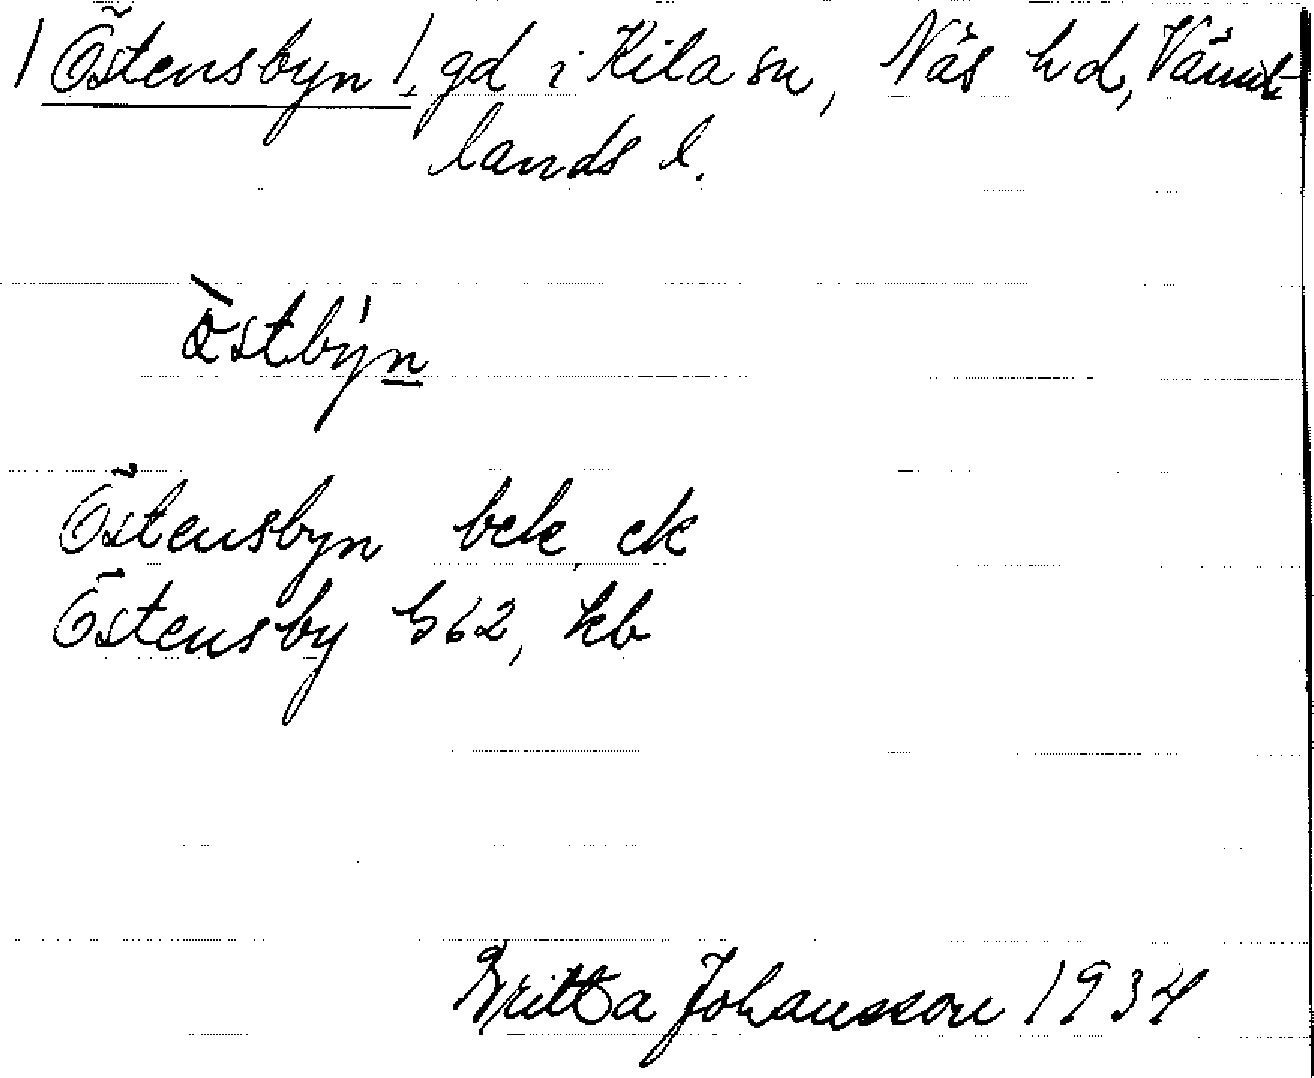 /Östensbyn/, gd i Kila sn, Näs hd, Värm-
lands l.
östbyn
Östensbyn bek, ek
Östensby G62, kb
Britta Johansson 1934